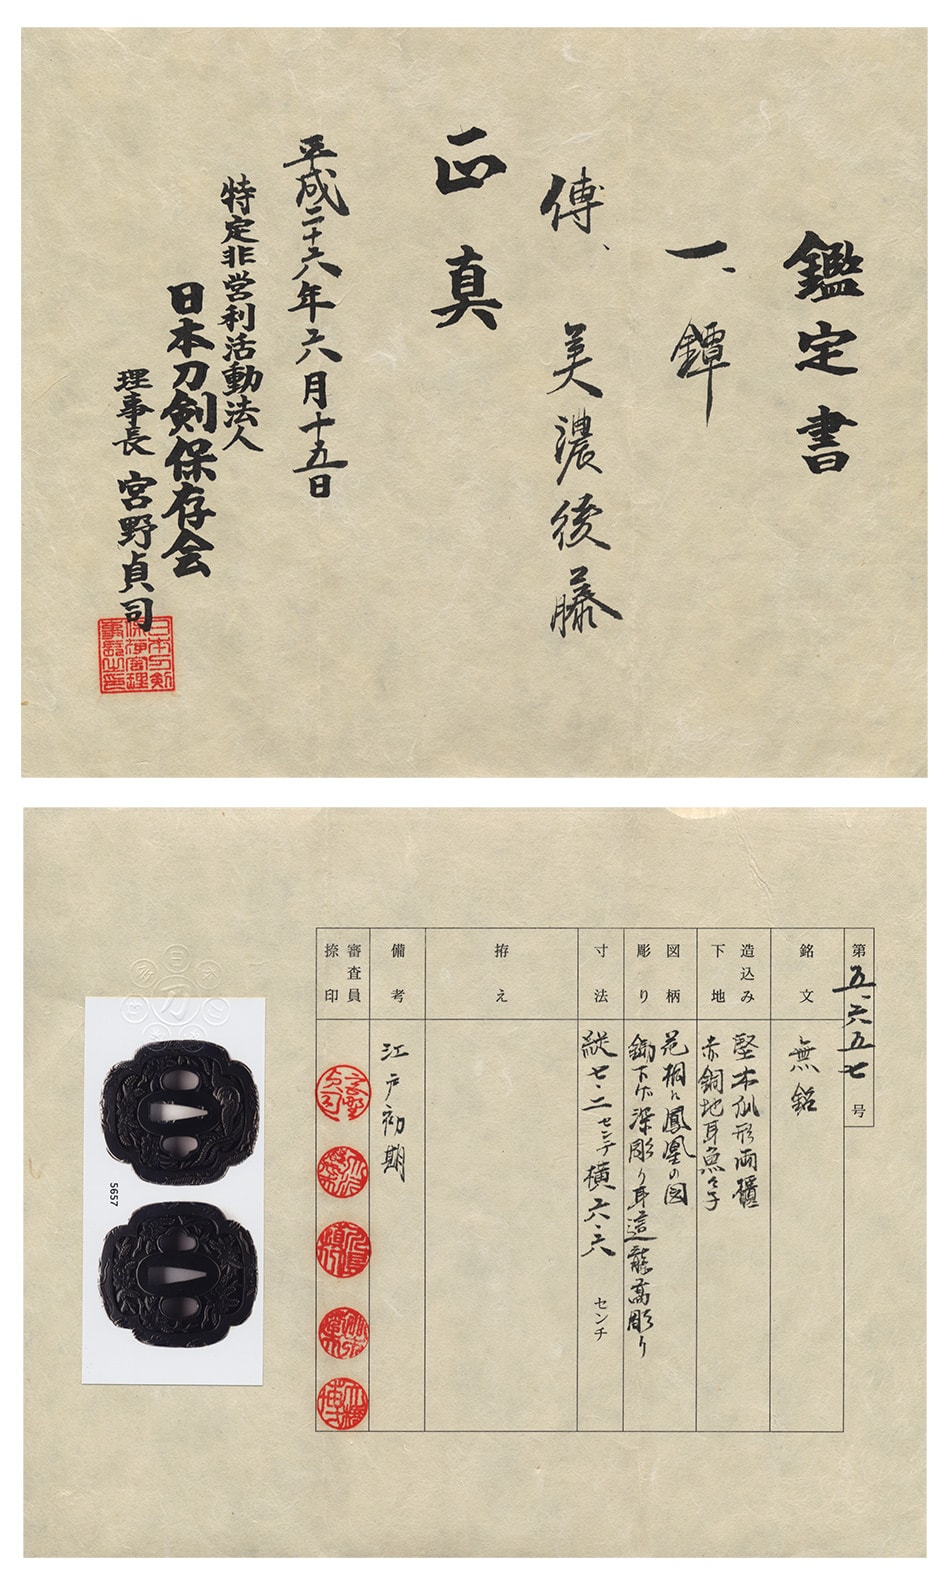 鑑定書
一、鐔
傳、美濃後藤
正真
平成二十六年六月十五日
特定非営利活動法人
日本刀剣保存会
理事長 宮野貞司
第五、六五七号
銘文
無銘
造込み
下地
竪木瓜形両櫃
赤銅地耳魚々子
図柄
彫り
花桐に鳳凰の図
鋤下げ深彫り耳這龍高彫り
寸法
縦七・二センチ横六・六センチ
拵え
備考
江戸初期
審査員
捺印
5657